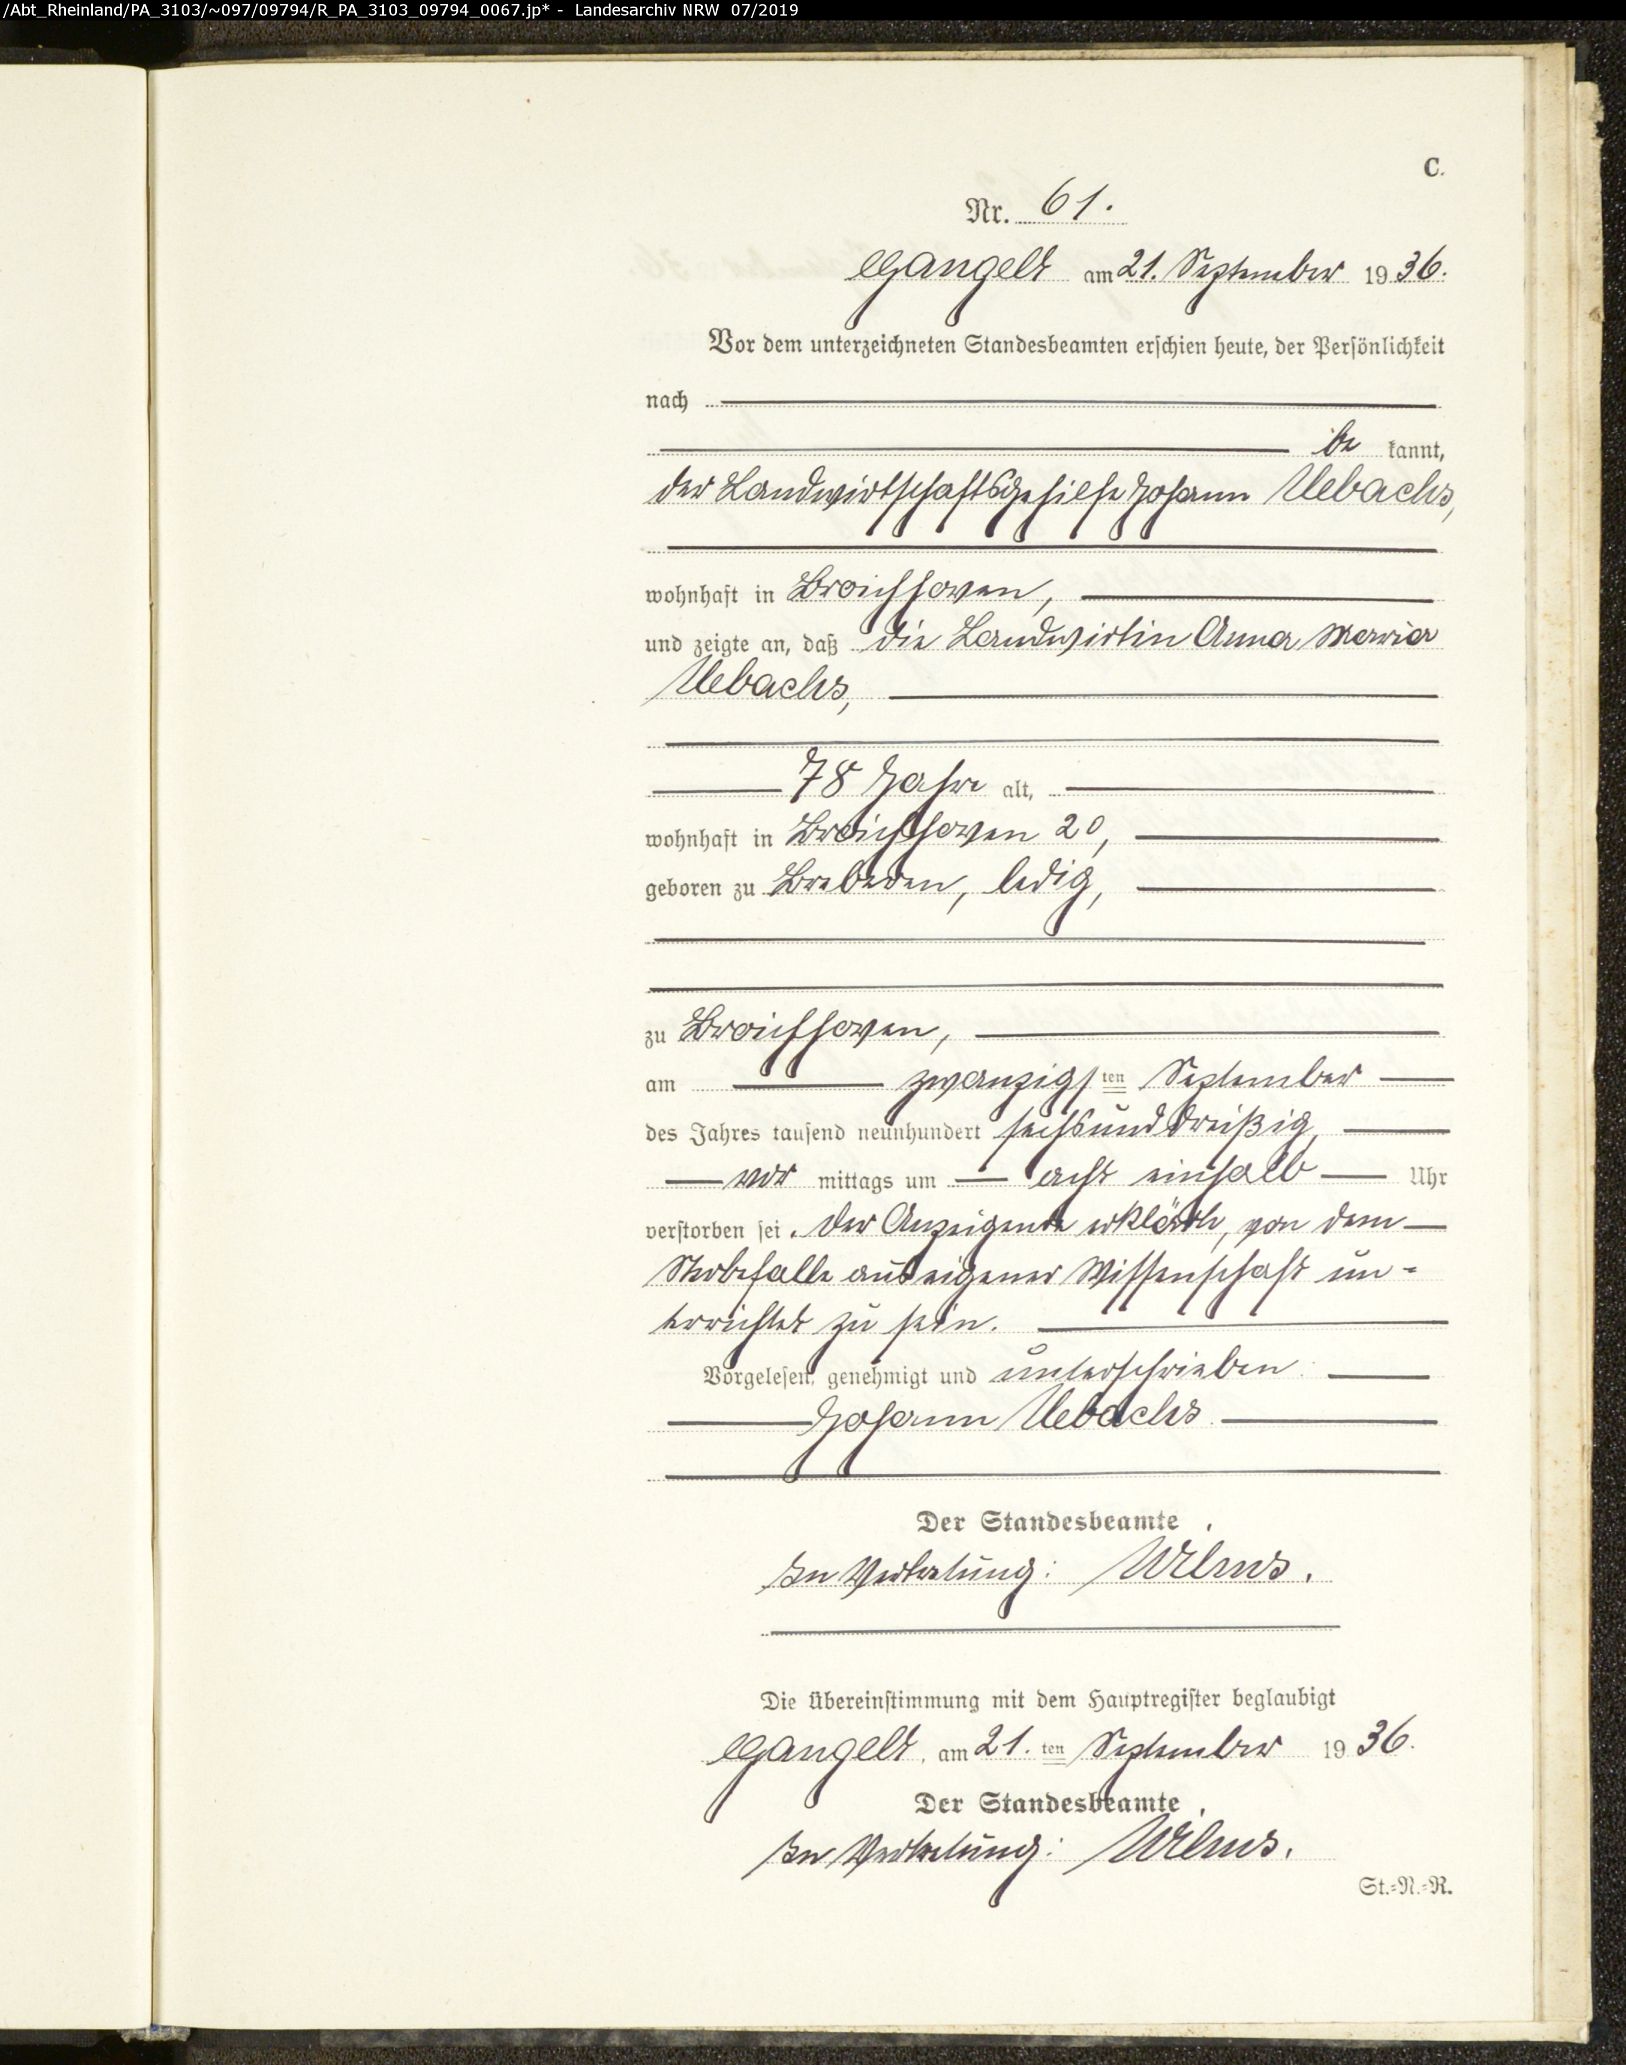 /Abt_Rheinland/PA_3103/~097/09794/R_PA_3103_09794_0067.jp* - Landesarchiv NRW 07/2019
C.
Nr. 61.
Gangelt am 21. September 1936.
Vor dem unterzeichneten Standesbeamten erschien heute, der Persönlichkeit
nach
be kannt,
der Landwirtschaftsgehilfe Johann Uebachs,
wohnhaft in Broichhoven,
und zeigte an, daß die Landwirtin Anna Maria
Uebachs,
78 Jahre alt,
wohnhaft in Broichhoven 20,
geboren zu Breberen, ledig,
zu Broichhoven,
am zwanzigsten September
des Jahres tausend neunhundert sechsunddreißig,
vor mittags um acht einhalb Uhr
verstorben sei. Der Anzeigende erklärte, von dem
Sterbefalle aus eigener Wissenschaft un-
terrichtet zu sein.
Vorgelesen, genehmigt und unterschrieben
Johann Uebachs
Der Standesbeamte
In Vertretung: Wilms.
Die Übereinstimmung mit dem Hauptregister beglaubigt
Gangelt, am 21. ten September 1936.
Der Standesbeamte
In Vertretung: Wilms.
St.=N.=R.